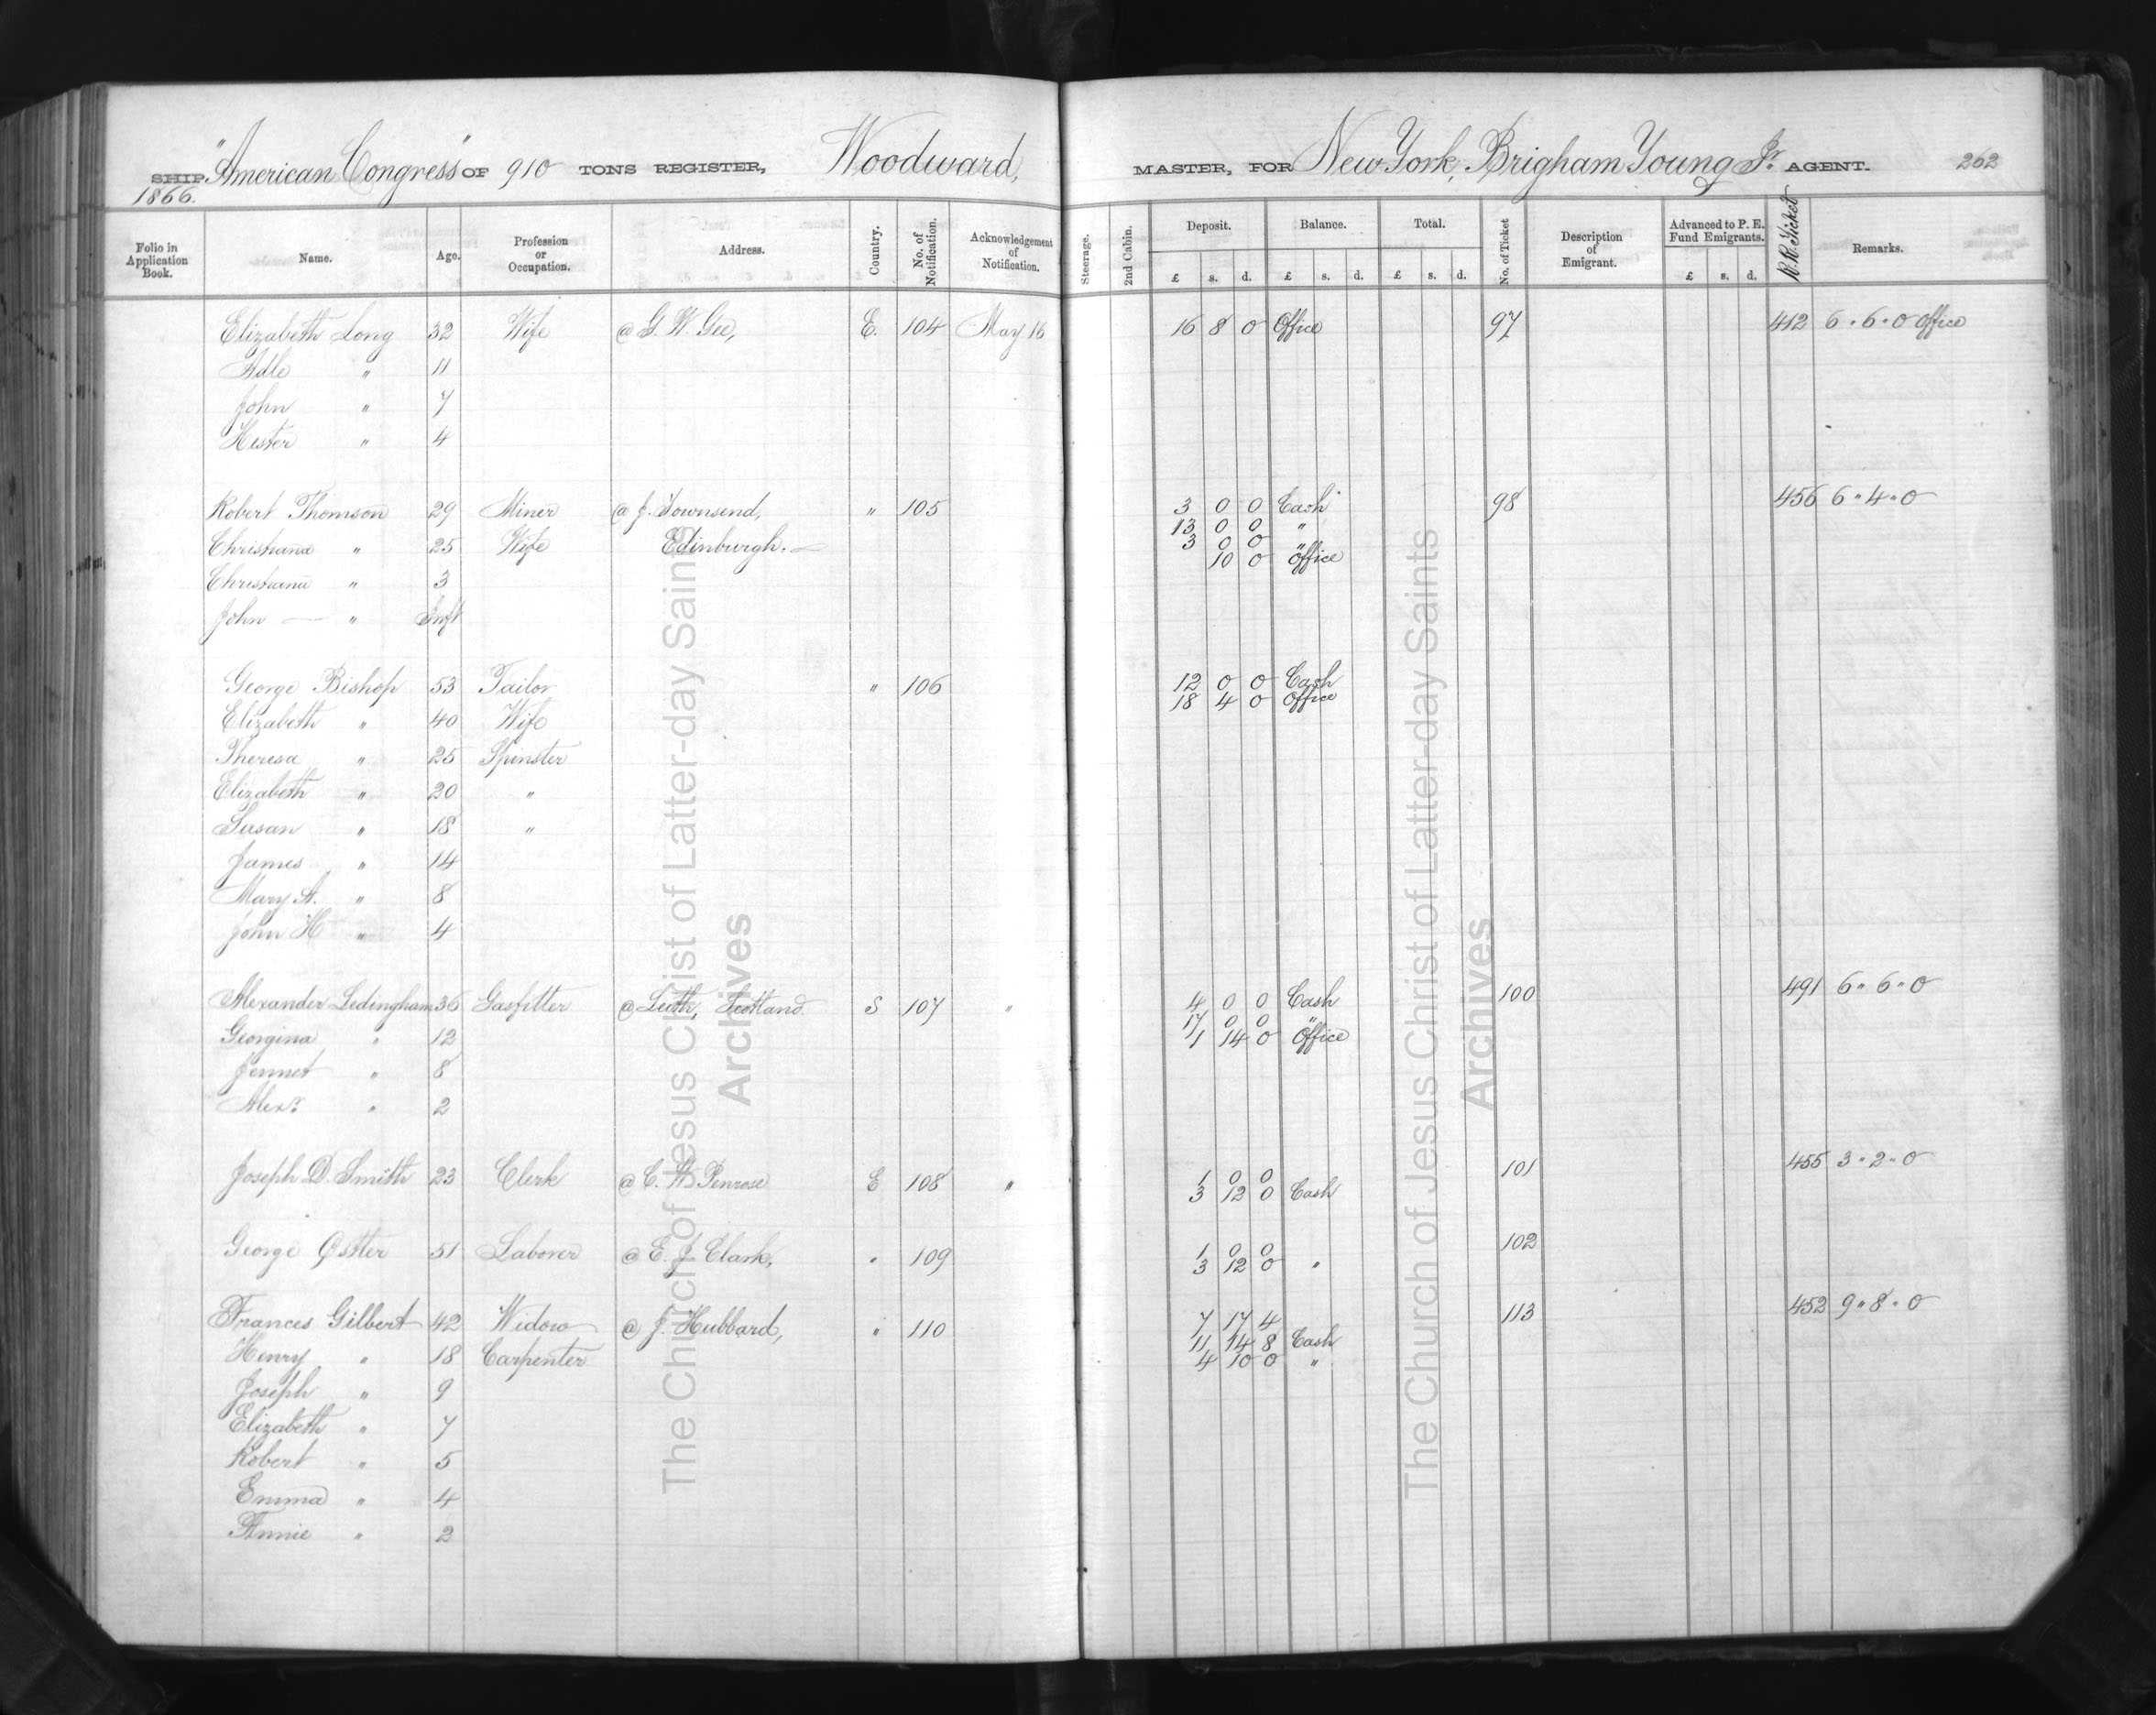 SHIP "American Congress" OF 910 TONS REGISTER, Woodward, MASTER, FOR New York, Brigham Young Jr. AGENT. 262
1866.
Folio in Application Book. Name. Age. Profession or Occupation. Address. Country. No. of Notification. Acknowledgement of Notification. Steerage. 2nd Cabin. Deposit. £ s. d. Balance. £ s. d. Total. £ s. d. No. of Ticket Description of Emigrant. Advanced to P. E. Fund Emigrants. £ s. d. R.R. Ticket Remarks.
Elizabeth Long 32 Wife @ G. W. Gee, E. 104 May 16 16 8 0 Office 97 412 6 " 6 " 0 Office
Adle " 11
John " 7
Hester " 4
Robert Thomson 29 Miner @ J. Townsend, " 105 3 0 0 Cash 98 456 6 " 4 " 0
13 0 0 "
Christiana " 25 Wife Edinburgh. — 3 0 0 "
10 0 Office
Christiana " 3
John — " Inft
George Bishop 53 Tailor " 106 12 0 0 Cash
18 4 0 Office
Elizabeth " 40 Wife
Theresa " 25 Spinster
Elizabeth " 20 "
Susan " 18 "
James " 14
Mary A. " 8
John H " 4
Alexander Ledingham 36 Gasfitter @ Leith, Scotland. S 107 " 4 0 0 Cash 100 491 6 " 6 " 0
17 0 0 "
Georgina " 12 1 14 0 Office
Jennet " 8
Alexr. " 2
Joseph D. Smith 23 Clerk @ C. W. Penrose E 108 " 1 0 0 101 455 3 " 2 " 0
3 12 0 Cash
George Ostler 51 Laborer @ E. J. Clark, " 109 1 0 0 102
3 12 0 "
Frances Gilbert 42 Widow @ J. Hubbard, " 110 7 17 4 113 452 9 " 8 " 0
11 14 8 Cash
Henry " 18 Carpenter 4 10 0 "
Joseph " 9
Elizabeth " 7
Robert " 5
Emma " 4
Annie " 2
The Church of Jesus Christ of Latter-day Saints
Archives
The Church of Jesus Christ of Latter-day Saints
Archives